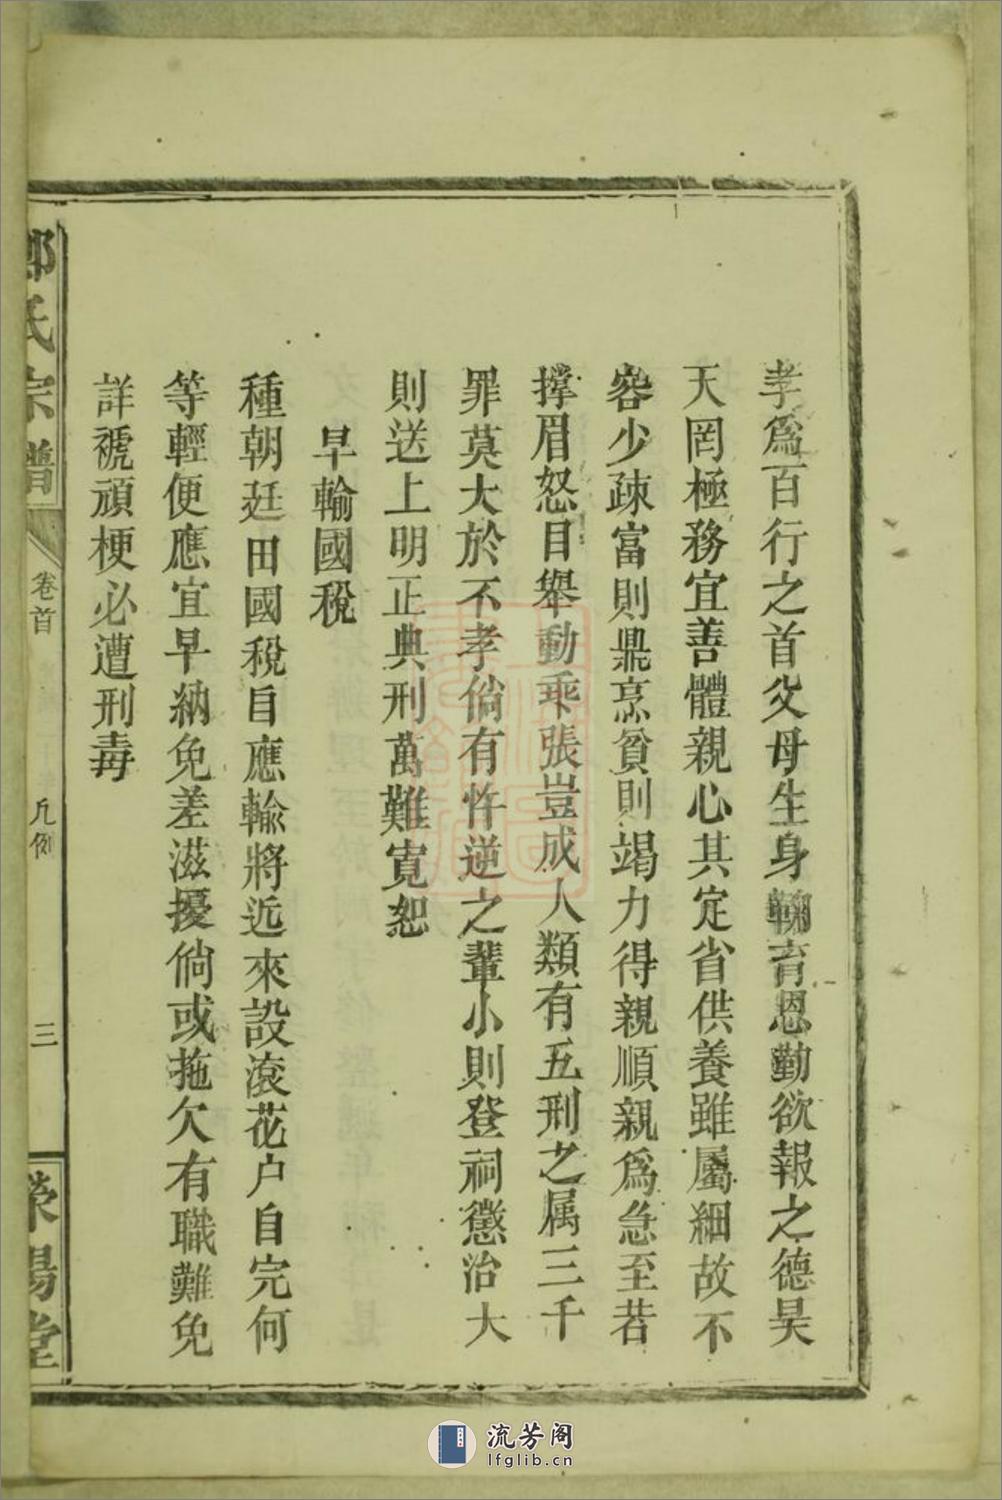 孝爲百行之首父母生身鞠育恩勤欲報之德昊
天罔極務宜善體親心其定省供養雖屬細故不
容少疎富則鼎烹貧則竭力得親順親爲急至若
撑眉怒目舉動乖張豈成人類有五刑之属三千
罪莫大於不孝倘有忤逆之輩小則登祠懲治大
則送上明正典刑萬難寬恕
早輸國稅
種朝廷田國稅自應輸將近來設滾花户自完何
等輕便應宜早納免差滋擾倘或拖欠有職難免
詳褫頑梗必遭刑毒
鄭氏宗譜
卷首
凡例
三
滎陽堂
流芳阁
lfglib.cn